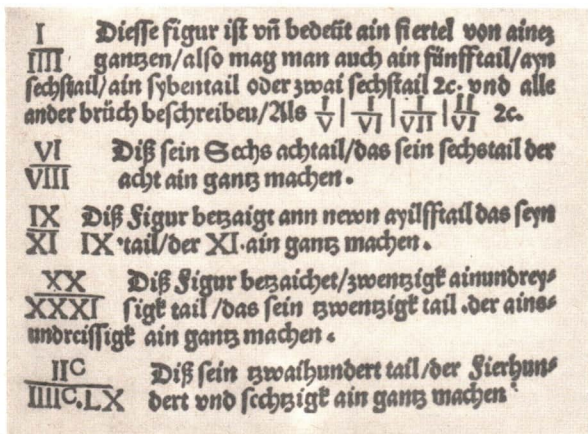 I Diesse figur ist vñ bedeüt ain fiertel von ainez
IIII gantzen/also mag man auch ain fünfftail/ayn
sechstail/ain sybentail oder zwai sechstail ꝛc. vnd alle
ander brüch beschreiben/Als I/V | I/VI | I/VII | II/VI ꝛc.
VI Diß sein Sechs achtail/das sein sechstail der
VIII acht ain gantz machen.
IX Diß Figur betzaigt ann newn ayilfftail das seyn
XI IX tail/der XI. ain gantz machen.
XX Diß Figur betzaichet/zwentzigk ainundrey⸗
XXXI sigk tail/das sein tzwentzigk tail .der ains⸗
undreissigk ain gantz machen.
IIC Diß sein tzwaihundert tail/der Fierhun⸗
IIIIC.LX dert vnd sechtzigk ain gantz machen